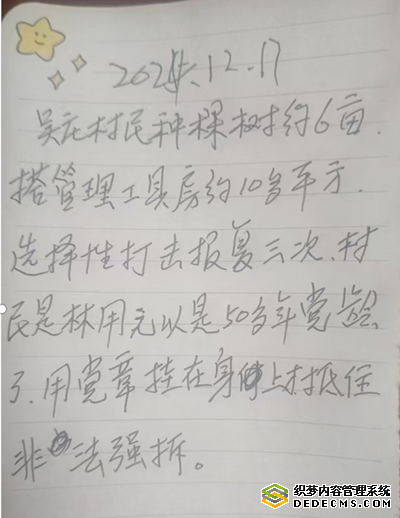 2024.12.17
吴庄村民种棵树约6亩.
搭管理工具房约10多平方.
选择性打击报复三次、村
民是林用无以是50多年党龄、
了.用党章挂在身上才抵住
非法强拆。
织梦内容管理系统
DEDECMS.COM